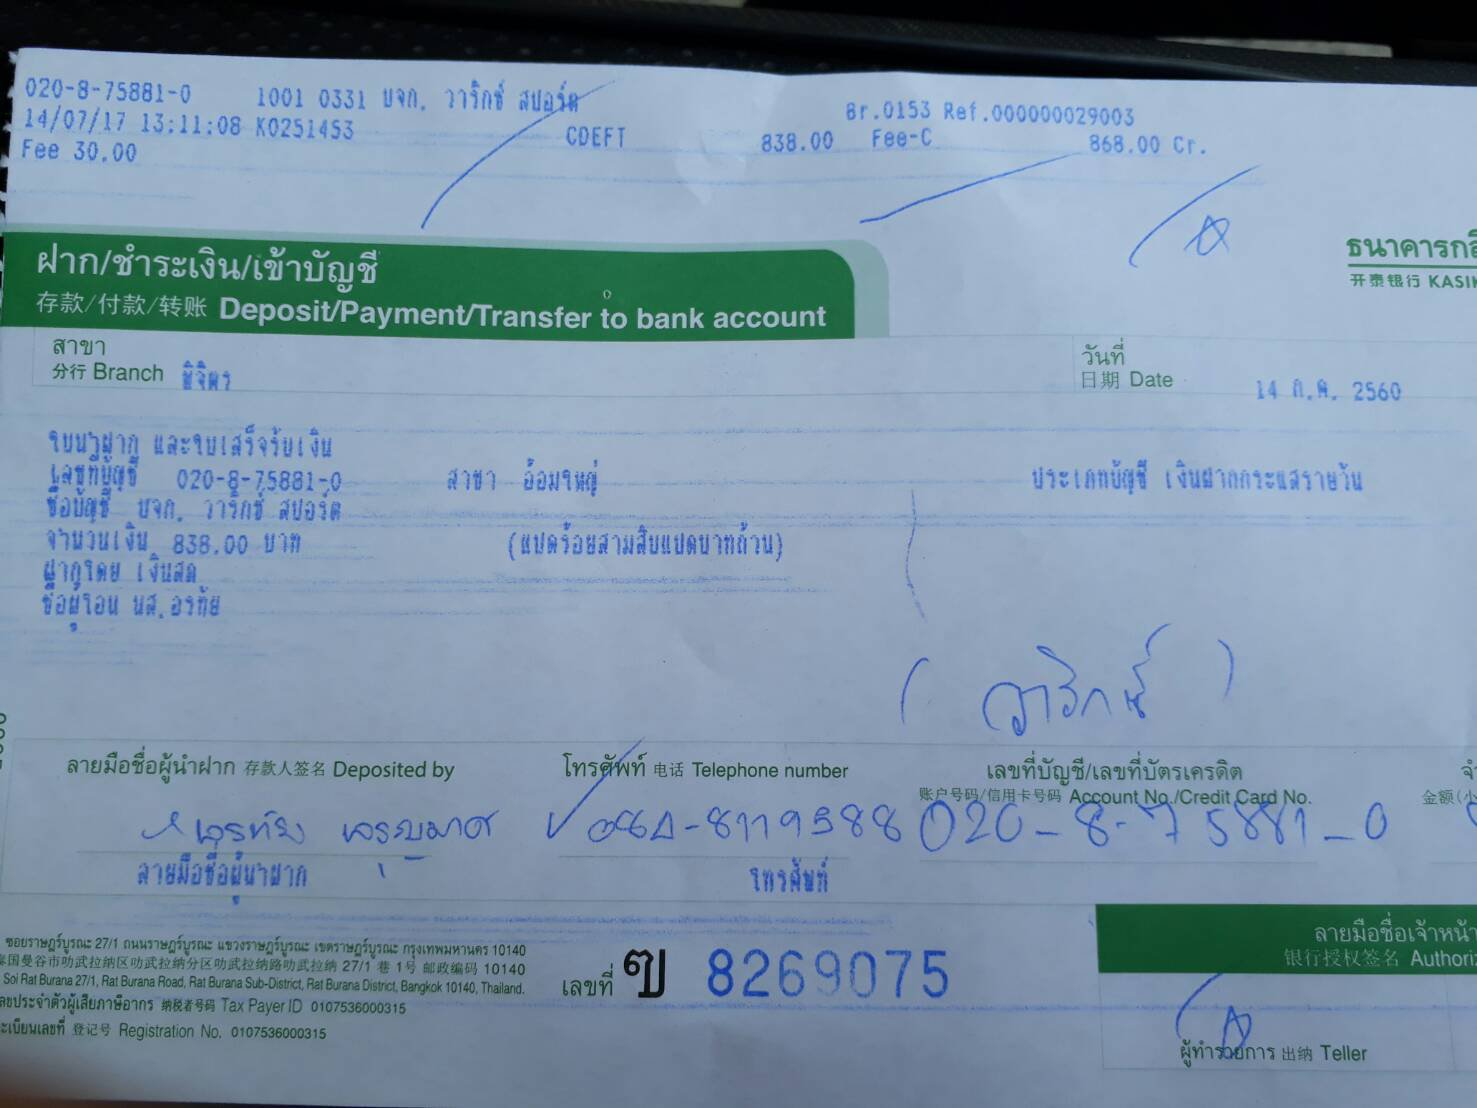 020-8-75881-0 1001 0331 บจก. วาริกซ์ สปอร์ต Br.0153 Ref.000000029003
14/07/17 13:11:08 K0251453 CDEFT 838.00 Fee-C 868.00 Cr.
Fee 30.00
ฝาก/ชำระเงิน/เข้าบัญชี
存款/付款/转账 Deposit/Payment/Transfer to bank account
ธนาคารกสิ
开泰银行 KASIK
สาขา
分行 Branch พิจิตร
วันที่
日期 Date 14 ก.ค. 2560
ใบนำฝาก และใบเสร็จรับเงิน
เลขที่บัญชี 020-8-75881-0 สาขา อ้อมใหญ่ ประเภทบัญชี เงินฝากกระแสรายวัน
ชื่อบัญชี บจก. วาริกซ์ สปอร์ต
จำนวนเงิน 838.00 บาท (แปดร้อยสามสิบแปดบาทถ้วน)
ฝากโดย เงินสด
ชื่อผู้โอน นส.อรทัย
( วาริกซ์ )
ลายมือชื่อผู้นำฝาก 存款人签名 Deposited by โทรศัพท์ 电话 Telephone number เลขที่บัญชี/เลขที่บัตรเครดิต
账户号码/信用卡号码 Account No./Credit Card No. 金额(小
020-8-75881-0
ลายมือชื่อผู้นำฝาก โทรศัพท์
ซอยราษฎร์บูรณะ 27/1 ถนนราษฎร์บูรณะ แขวงราษฎร์บูรณะ เขตราษฎร์บูรณะ กรุงเทพมหานคร 10140
泰国曼谷市叻武拉纳区叻武拉纳分区叻武拉纳路叻武拉纳 27/1 巷 1号 邮政编码 10140
Soi Rat Burana 27/1, Rat Burana Road, Rat Burana Sub-District, Rat Burana District, Bangkok 10140, Thailand.
เลขประจำตัวผู้เสียภาษีอากร 纳税者号码 Tax Payer ID 0107536000315
ทะเบียนเลขที่ 登记号 Registration No. 0107536000315
เลขที่ ฃ 8269075
ลายมือชื่อเจ้าหน้า
银行授权签名 Authoriz
ผู้ทำรายการ 出纳 Teller